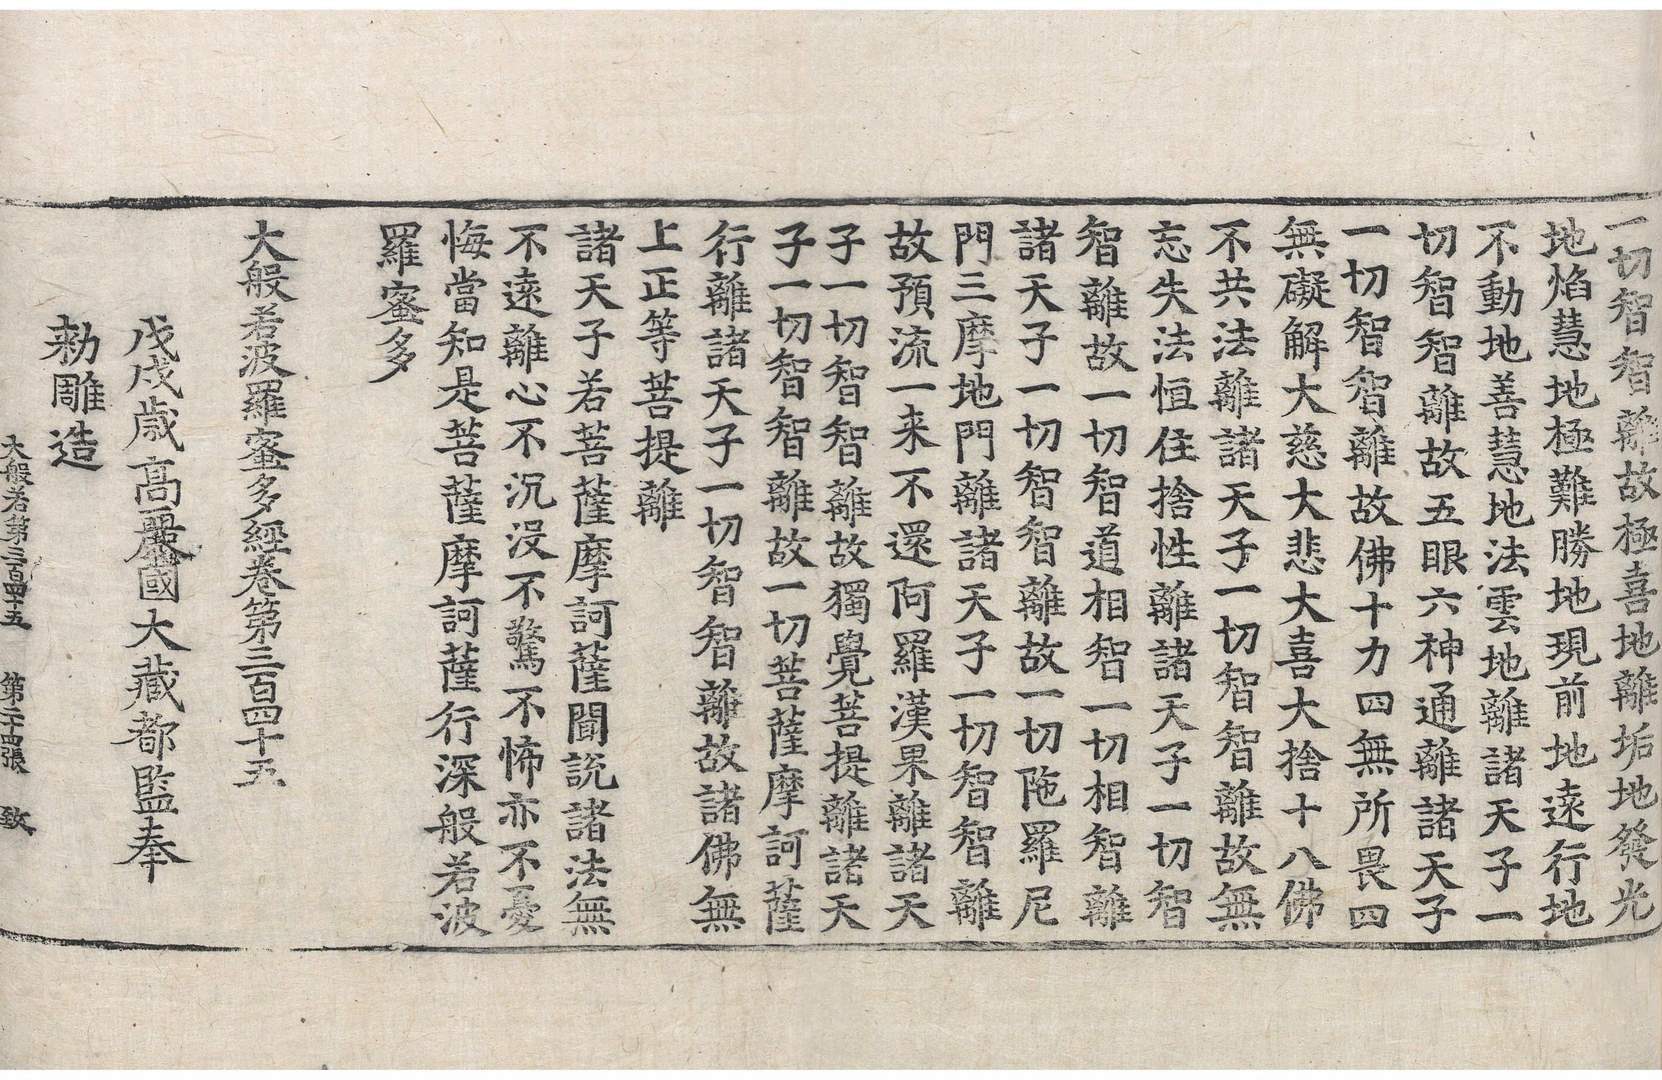 一切智智離故極喜地離垢地發光
地焰慧地極難勝地現前地遠行地
不動地善慧地法雲地離諸天子一
切智智離故五眼六神通離諸天子
一切智智離故佛十力四無所畏四
無礙解大慈大悲大喜大捨十八佛
不共法離諸天子一切智智離故無
忘失法恒住捨性離諸天子一切智
智離故一切智道相智一切相智離
諸天子一切智智離故一切陁羅尼
門三摩地門離諸天子一切智智離
故預流一来不還阿羅漢果離諸天
子一切智智離故獨覺菩提離諸天
子一切智智離故一切菩薩摩訶薩
行離諸天子一切智智離故諸佛無
上正等菩提離
諸天子若菩薩摩訶薩聞說諸法無
不遠離心不沉沒不驚不怖亦不憂
悔當知是菩薩摩訶薩行深般若波
羅蜜多
大般若波羅蜜多經卷第三百四十五
戊戌歲高麗國大藏都監奉
勅雕造
大般若第三百四十五 第二十四張 致